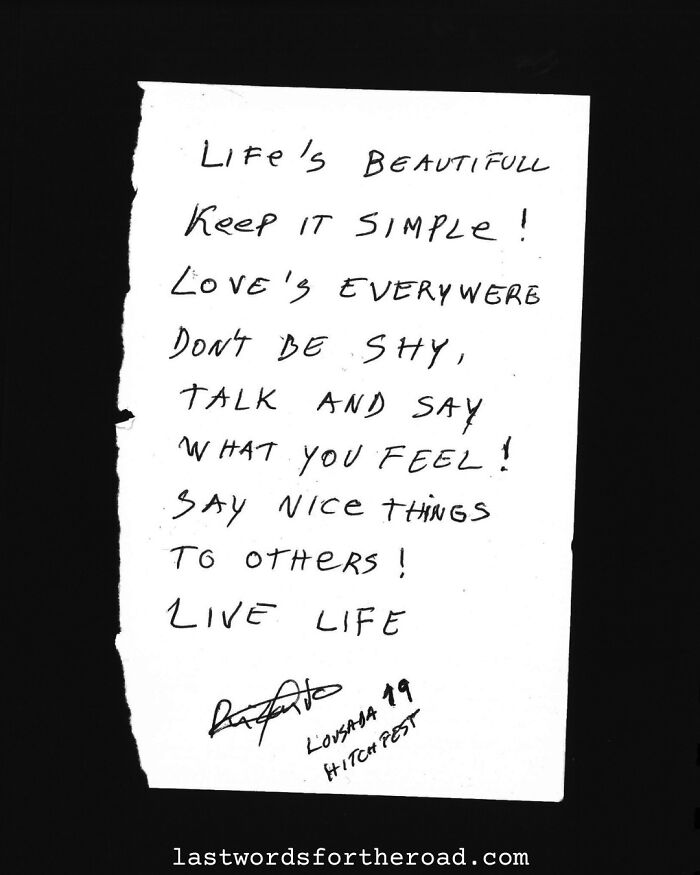 LIFe's BEAUTIFULL
KeeP IT SIMPLe!
LOVE'S EVERYWERE
DON'T BE SHY,
TALK AND SAY
WHAT YOU FEEL!
SAY NICe THINGS
TO OTHeRS!
LIVE LIFE
LOUSADA 19
HITCHFEST
lastwordsfortheroad.com